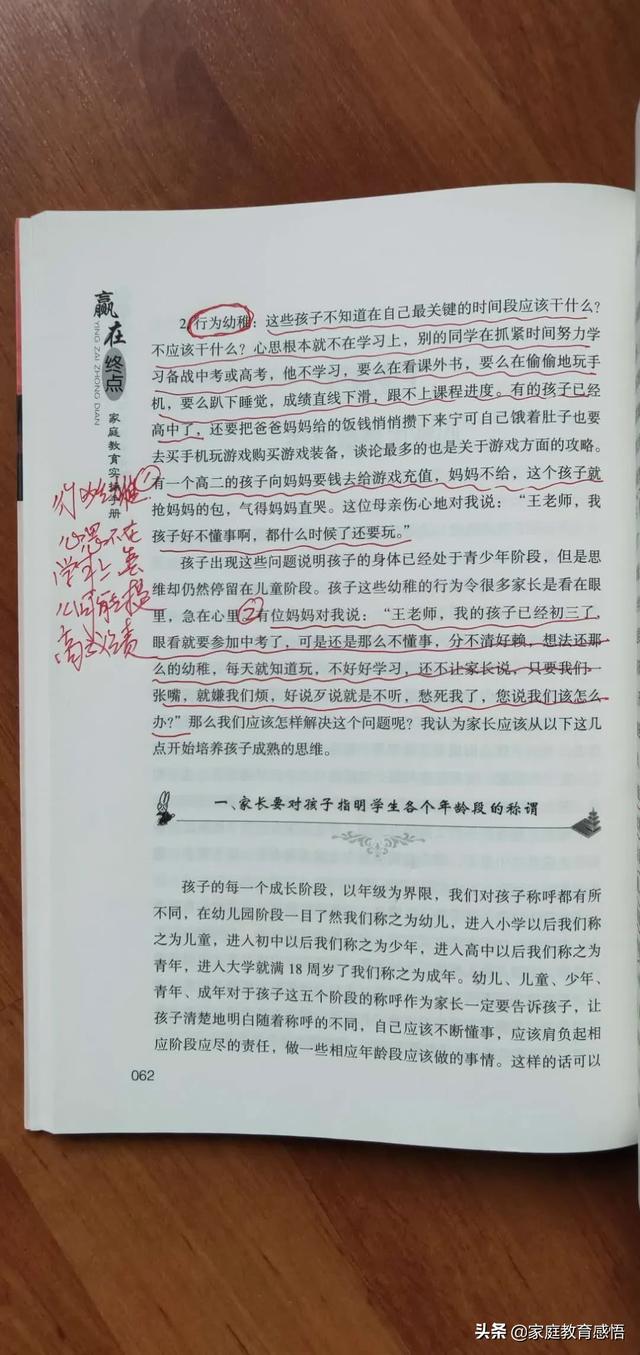 赢在终点
YING ZAI ZHONG DIAN
家庭教育实操手册
2. 行为幼稚：这些孩子不知道在自己最关键的时间段应该干什么？
不应该干什么？心思根本就不在学习上，别的同学在抓紧时间努力学
习备战中考或高考，他不学习，要么在看课外书，要么在偷偷地玩手
机，要么趴下睡觉，成绩直线下滑，跟不上课程进度。有的孩子已经
高中了，还要把爸爸妈妈给的饭钱悄悄攒下来宁可自己饿着肚子也要
去买手机玩游戏购买游戏装备，谈论最多的也是关于游戏方面的攻略。
①
有一个高二的孩子向妈妈要钱去给游戏充值，妈妈不给，这个孩子就
抢妈妈的包，气得妈妈直哭。这位母亲伤心地对我说：“王老师，我
孩子好不懂事啊，都什么时候了还要玩。”
心思不在
学习上
孩子出现这些问题说明孩子的身体已经处于青少年阶段，但是思
维却仍然停留在儿童阶段。孩子这些幼稚的行为令很多家长是看在眼
里，急在心里②有位妈妈对我说：“王老师，我的孩子已经初三了，
眼看就要参加中考了，可是还是那么不懂事，分不清好赖，想法还那
么的幼稚，每天就知道玩，不好好学习，还不让家长说，只要我们一
张嘴，就嫌我们烦，好说歹说就是不听，愁死我了，您说我们该怎么
办？”那么我们应该怎样解决这个问题呢？我认为家长应该从以下这几
点开始培养孩子成熟的思维。
一、家长要对孩子指明学生各个年龄段的称谓
孩子的每一个成长阶段，以年级为界限，我们对孩子称呼都有所
不同，在幼儿园阶段一目了然我们称之为幼儿，进入小学以后我们称
之为儿童，进入初中以后我们称之为少年，进入高中以后我们称之为
青年，进入大学就满 18 周岁了我们称之为成年。幼儿、儿童、少年、
青年、成年对于孩子这五个阶段的称呼作为家长一定要告诉孩子，让
孩子清楚地明白随着称呼的不同，自己应该不断懂事，应该肩负起相
应阶段应尽的责任，做一些相应年龄段应该做的事情。这样的话可以
062
头条 @家庭教育感悟